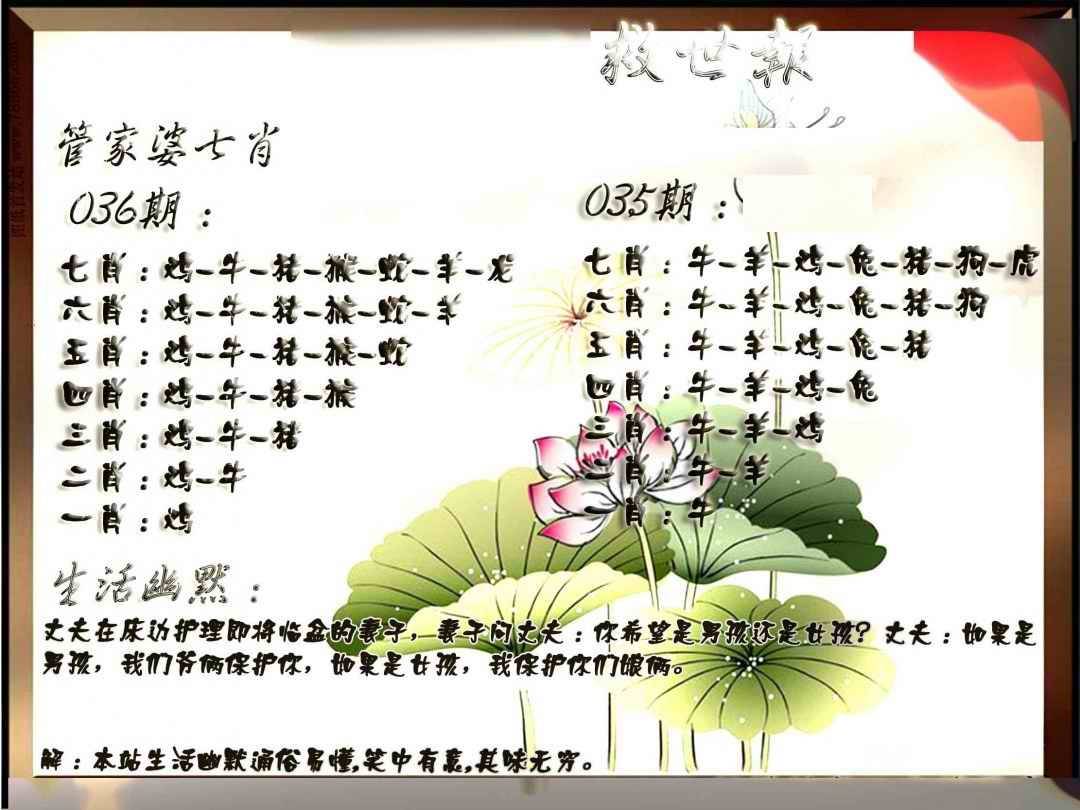 救世報
管家婆七肖
036期：
七肖：鸡-牛-猪-猴-蛇-羊-龙
六肖：鸡-牛-猪-猴-蛇-羊
五肖：鸡-牛-猪-猴-蛇
四肖：鸡-牛-猪-猴
三肖：鸡-牛-猪
二肖：鸡-牛
一肖：鸡
035期：
七肖：牛-羊-鸡-兔-猪-狗-虎
六肖：牛-羊-鸡-兔-猪-狗
五肖：牛-羊-鸡-兔-猪
四肖：牛-羊-鸡-兔
三肖：牛-羊-鸡
二肖：牛-羊
一肖：牛
生活幽默：
丈夫在床边护理即将临盆的妻子，妻子问丈夫：你希望是男孩还是女孩？丈夫：如果是
男孩，我们爷俩保护你，如果是女孩，我保护你们娘俩。
解：本站生活幽默通俗易懂,笑中有意,其味无穷。